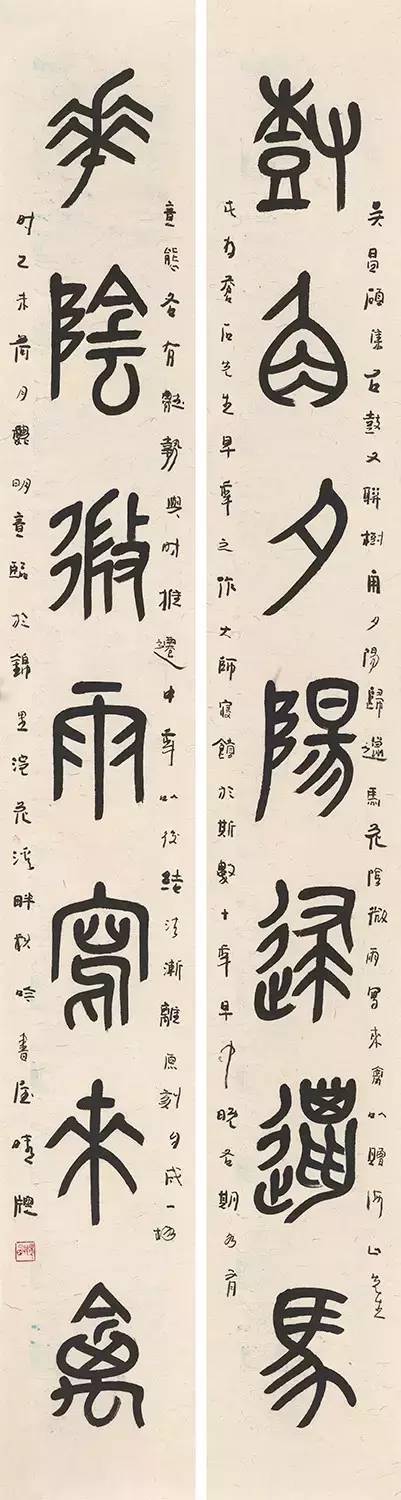 樹角夕陽歸邋馬
吳昌碩集石鼓文聯樹角夕陽歸邋馬花陰微雨寫來禽以贈河山先生
此為蒼石先生早年之作大師寢饋於斯數十年早中晚各期各有
華陰微雨寫來禽
意態各有體勢與時推遷中年以後結法漸離原刻自成一格
時乙未荷月明意臨於錦里浣花溪畔秋吟書屋晴牕